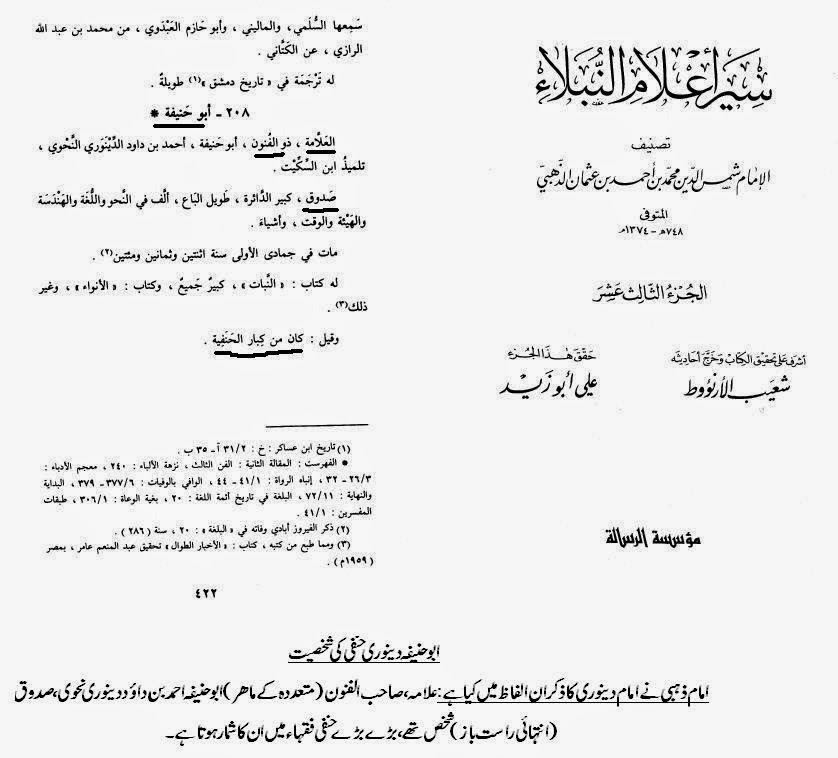 سير أعلام النبلاء
تصنيف
الإمام شمس الدين محمد بن أحمد بن عثمان الذهبي
المتوفى
٧٤٨هـ - ١٣٧٤م
الجزء الثالث عشر
أشرف على تحقيق الكتاب وخرج أحاديثه
شعيب الأرنؤوط
حقق هذا الجزء
علي أبو زيد
مؤسسة الرسالة
سَمِعها السُّلَمي ، والماليني ، وأبو حازم العَبْدَوي ، من محمد بن عبد الله
الرازي ، عن الكَتَّاني .
له تَرْجَمة في « تاريخ دمشق »(١) طويلةٌ .
٢٠٨ - أبو حَنيفة *
العَلَّامة ، ذو الفُنون ، أبو حَنيفة ، أحمد بن داود الدِّينَوري النَّحْوي ،
تلميذُ ابن السِّكِّيْت .
صَدوق ، كبير الدَّائرة ، طَويل البَاع ، ألَّف في النَّحو واللُّغة والهَنْدَسة
والهَيْئة والوقت ، وأشياءَ .
مات في جمادى الأولى سنة اثنتين وثمانين ومئتين(٢) .
له كتاب : « النَّبات » ، كبيرٌ جَميعٌ ، وكتاب : « الأنواء » ، وغير
ذلك(٣) .
وقيل : كان من كِبار الحَنَفية .
(١) تاريخ ابن عساكر : خ : ٣١/٢ آ - ٣٥ ب .
* الفهرست : المقالة الثانية : الفن الثالث ، نزهة الألباء : ٢٤٠ ، معجم الأدباء :
٢٦/٣ - ٣٢ ، إنباه الرواة : ٤١/١ - ٤٤ ، الوافي بالوفيات : ٣٧٧/٦ - ٣٧٩ ، البداية
والنهاية : ٧٢/١١ ، البلغة في تاريخ أئمة اللغة : ٢٠ ، بغية الوعاة : ٣٠٦/١ ، طبقات
المفسرين : ٤١/١ .
(٢) ذكر الفيروز أبادي وفاته في « البلغة » : ٢٠ ، سنة ( ٢٨٦ ) .
(٣) ومما طبع من كتبه ، كتاب : « الأخبار الطوال » تحقيق عبد المنعم عامر ، بمصر
( ١٩٥٩م ) .
٤٢٢
ابو حنیفہ دینوری حنفی کی شخصیت
امام ذہبی نے امام دینوری کا ذکر ان الفاظ میں کیا ہے: علامہ، صاحب الفنون (متعددہ کے ماہر) ابو حنیفہ احمد بن داؤد دینوری نحوی، صدوق
(انتہائی راست باز) شخص تھے، بڑے بڑے حنفی فقہاء میں ان کا شمار ہوتا ہے۔